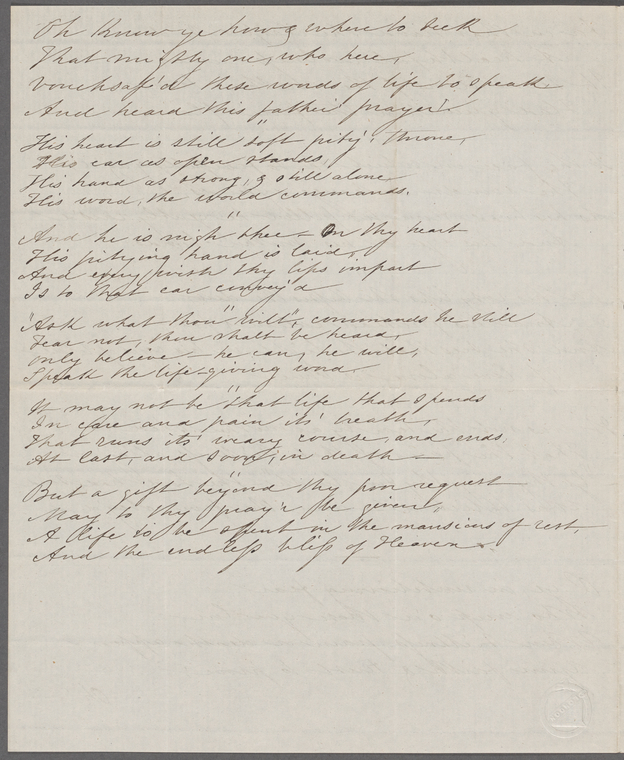 Oh know ye how & where to seek
That mighty one, who here,
vouchsaf'd these words of life to speak
And heard this father' prayer.
"
His heart is still soft pity' throne,
His ear as open stands,
His hand as strong, & still alone
His word, the world commands.
"
And he is nigh thee – On thy heart
His pitying hand is laid,
And every wish thy lips impart
Is to that ear convey'd
"
"Ask what thou wilt", commands he still
Fear not, thou shalt be heard,
only believe – he can, he will,
Speak the life-giving word.
"
It may not be that life that spends
In care and pain its' breath,
That runs its' weary course, and ends,
At last, and soon, in death –
"
But a gift beyond thy poor request
May to thy pray'r be given,
A life to be spent in the mansions of rest,
And the endless bliss of Heaven